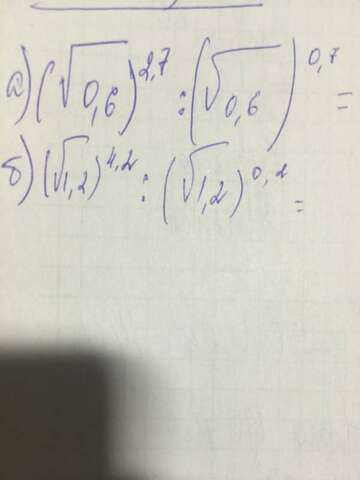 а) (√0,6)^2,7 : (√0,6)^0,7 =
б) (√1,2)^4,2 : (√1,2)^0,2 =